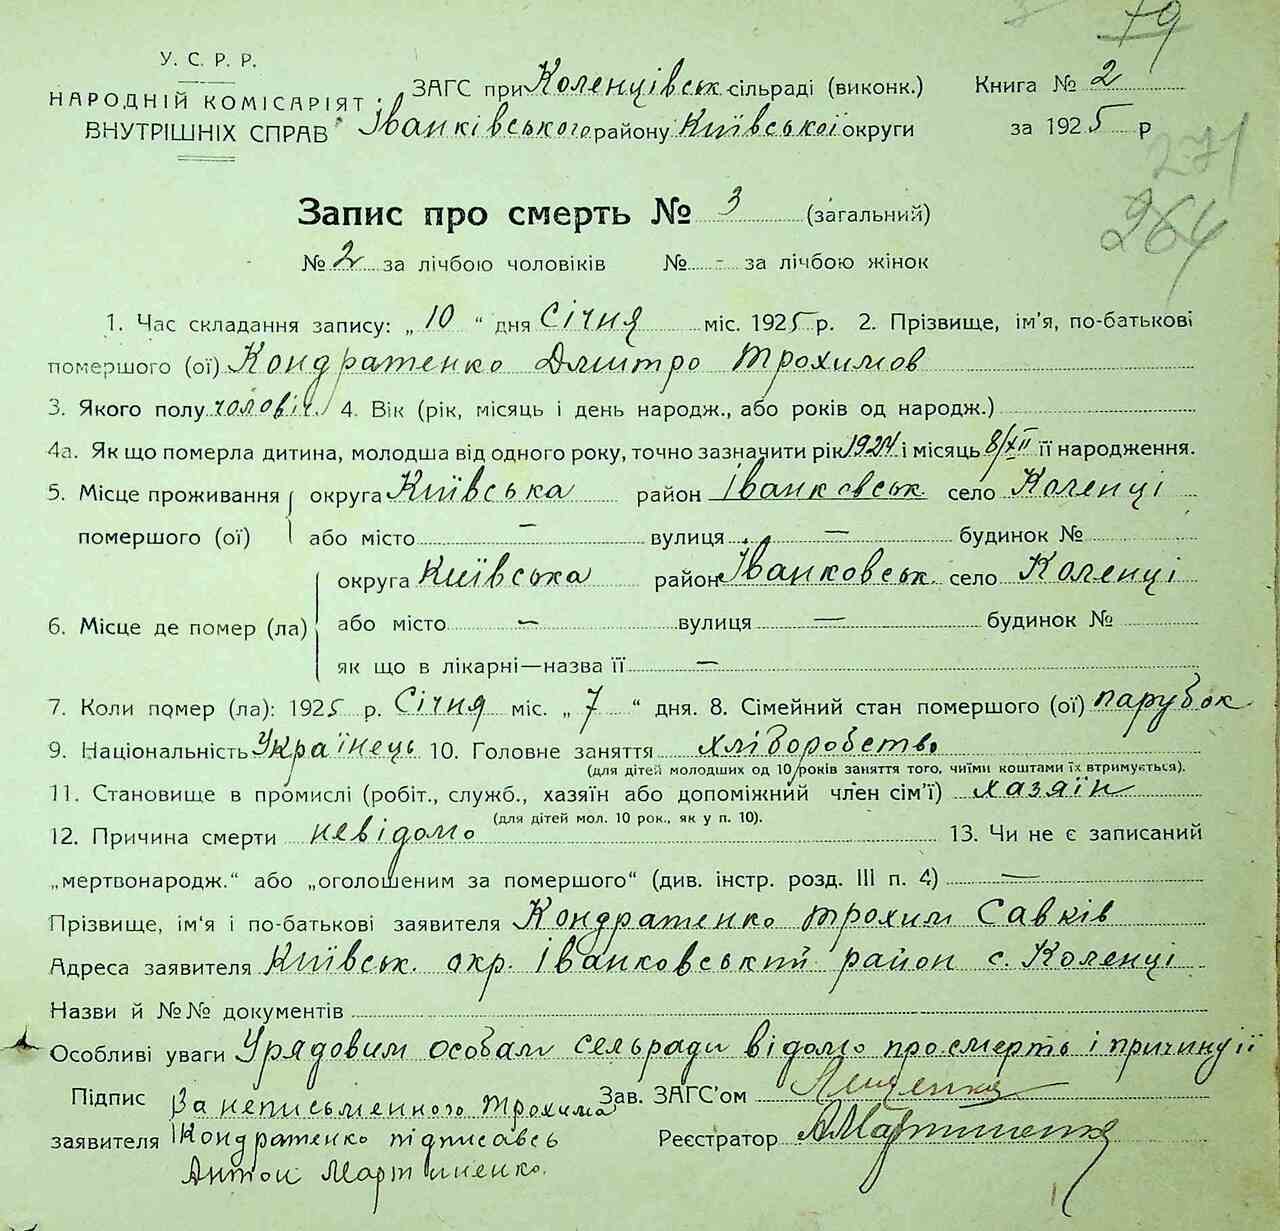 79
У. С. Р. Р.
НАРОДНІЙ КОМІСАРІЯТ
ВНУТРІШНІХ СПРАВ
ЗАГС при Коленцівськ сільраді (виконк.) Книга № 2
Іванківського району Київської округи за 1925 р
271
264
Запис про смерть № 3 (загальний)
№ 2 за лічбою чоловіків № - за лічбою жінок
1. Час складання запису: „ 10 “ дня Січня міс. 1925 р. 2. Прізвище, ім'я, по-батькові
помершого (ої) Кондратенко Дмитро Трохимов
3. Якого полу чоловіч. 4. Вік (рік, місяць і день народж., або років од народж.)
4а. Як що померла дитина, молодша від одного року, точно зазначити рік 1924 і місяць 8/XII її народження.
5. Місце проживання округа Київська район Іванковськ село Коленці
помершого (ої) або місто — вулиця — будинок №
округа Київська район Іванковськ. село Коленці
6. Місце де помер (ла) або місто — вулиця — будинок №
як що в лікарні—назва її —
7. Коли помер (ла): 1925 р. Січня міс. „ 7 “ дня. 8. Сімейний стан помершого (ої) парубок
9. Національність Українець 10. Головне заняття хліборобство
(для дітей молодших од 10 років заняття того, чиїми коштами їх втримується).
11. Становище в промислі (робіт., служб., хазяїн або допоміжний член сім'ї) хазяїн
(для дітей мол. 10 рок., як у п. 10).
12. Причина смерти невідомо 13. Чи не є записаний
„мертвонародж.“ або „оголошеним за помершого“ (див. інстр. розд. III п. 4) —
Прізвище, ім'я і по-батькові заявителя Кондратенко Трохим Савків
Адреса заявителя Київськ. окр. Іванковський район с. Коленці
Назви й №№ документів
Особливі уваги Урядовим особам сельради відомо про смерть і причину її
Підпис За неписьменного Трохима Зав. ЗАГС'ом
заявителя Кондратенко підписавсь Реєстратор АМартиненко
Антон Мартиненко.